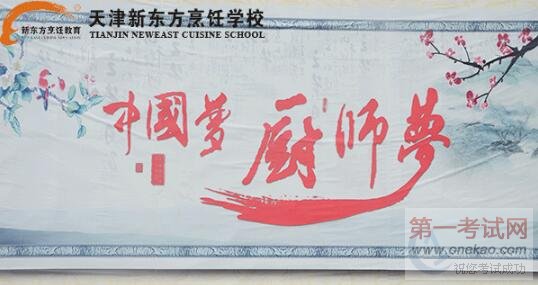 天津新东方烹饪学校
新东方烹饪教育
TIANJIN NEWEAST CUISINE SCHOOL
中國夢 厨师夢
第一考试网
www.onekao.com
祝您考试成功